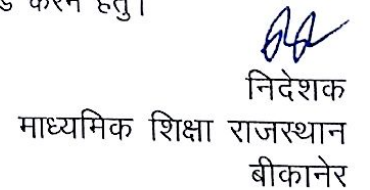 करने हेतु।
निदेशक
माध्यमिक शिक्षा राजस्थान
बीकानेर